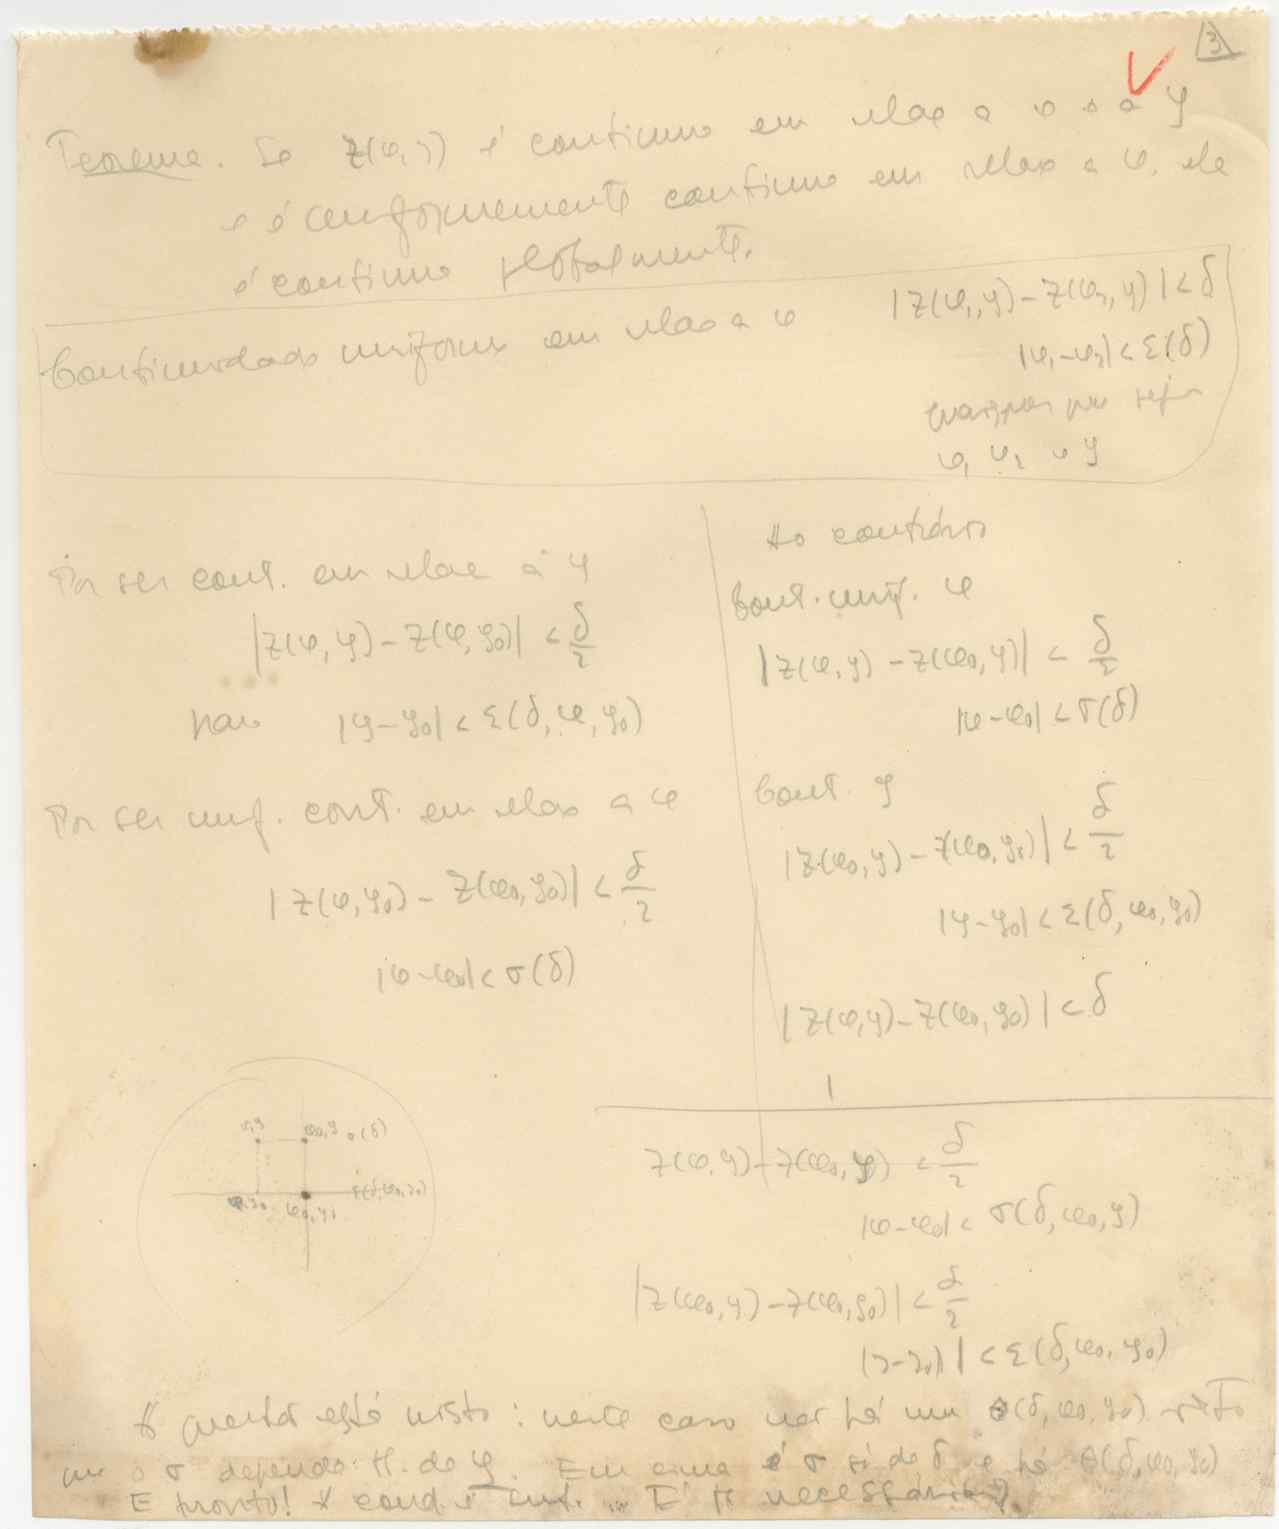 3
Teorema. Se z(φ, y) é continuo em relao a φ e a y
e é uniformemente continuo em relao a φ, ele
é continuo globalmente.
Continuidade uniforme em relao a φ
|z(φ₁, y) - z(φ₂, y)| < δ
|φ₁ - φ₂| < ε(δ)
quaisquer que sejam
φ₁ φ₂ e y
Por ser cont. em relao a y
|z(φ, y) - z(φ, y₀)| < δ/2
para |y - y₀| < ε(δ, φ, y₀)
Por ser unif. cont. em relao a φ
|z(φ, y₀) - z(φ₀, y₀)| < δ/2
|φ - φ₀| < σ(δ)
Ao contrário
Cont. unif. φ
|z(φ, y) - z(φ₀, y)| < δ/2
|φ - φ₀| < σ(δ)
Cont. y
|z(φ₀, y) - z(φ₀, y₀)| < δ/2
|y - y₀| < ε(δ, φ₀, y₀)
|z(φ, y) - z(φ₀, y₀)| < δ
φ₀, y σ(δ)
φ, y₀ φ₀, y₀ ε(δ, φ₀, y₀)
z(φ, y) - z(φ₀, y) < δ/2
|φ - φ₀| < σ(δ, φ₀, y)
|z(φ₀, y) - z(φ₀, y₀)| < δ/2
|y - y₀)| < ε(δ, φ₀, y₀)
A questão está nisto: neste caso não há um θ(δ, φ₀, y₀)
que o σ depende tb. de y. Em cima é σ só de δ e há θ(δ, φ₀, y₀)
E pronto! A cond. é suf. ... E é necessária?